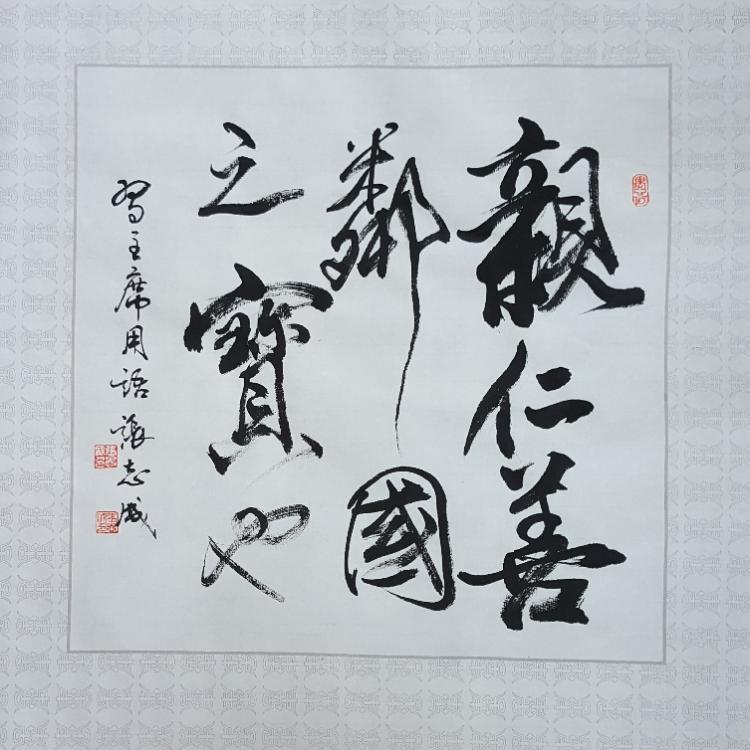 親仁善
鄰國
之寶也
习主席用语張志成